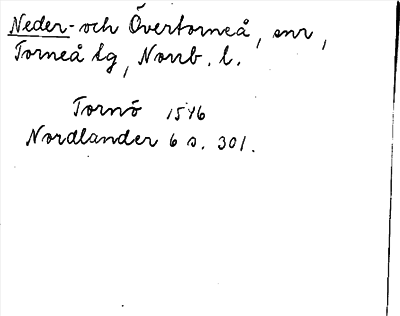 Neder- och Övertorneå, snr,
Torneå tg, Norrb. l.
Tornö 1546
Nordlander 6 s. 301.